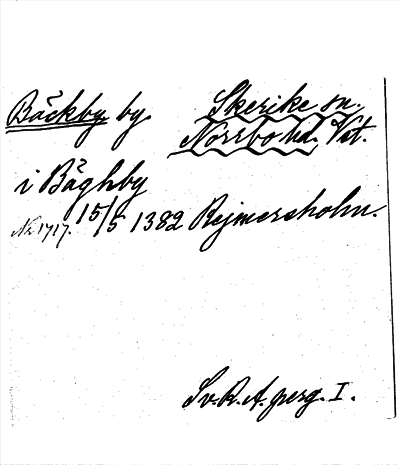 Bäckby by. Skerike sn.
Norrbo hd. Vst.
i Bäghby
15/5 1382 Rejmersholm.
No 1717.
Sv. R. A. perg. I.